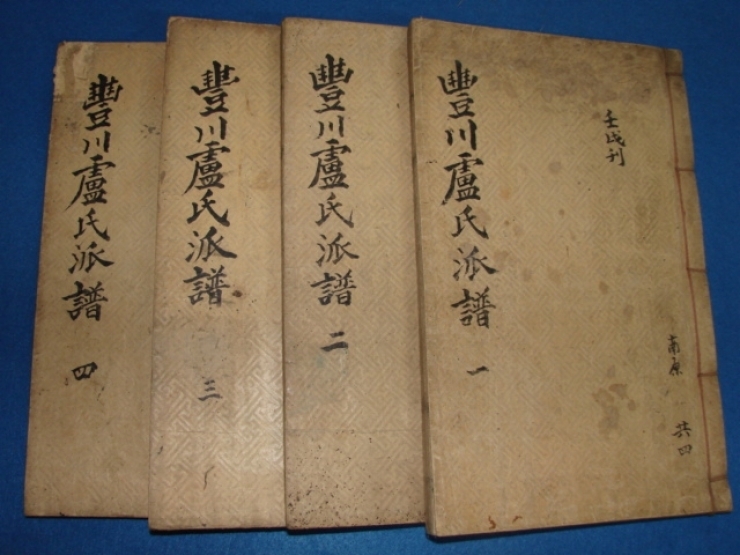 豐川盧氏派譜 一
壬戌刊
南原
共四
豐川盧氏派譜 二
豐川盧氏派譜 三
豐川盧氏派譜 四